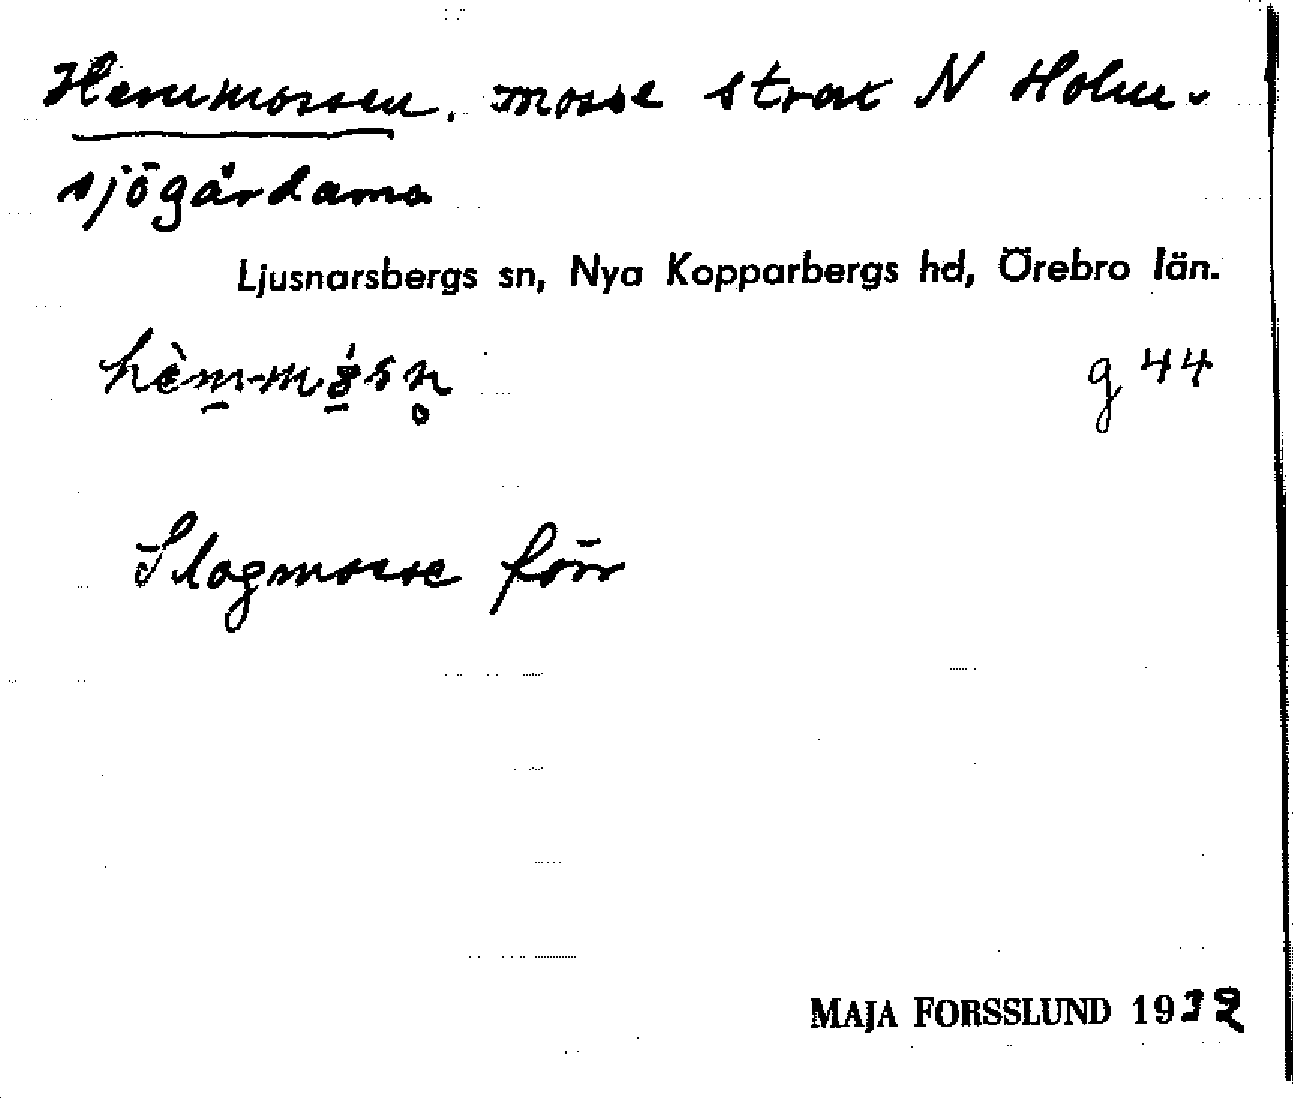 Hemmossen. mosse strax N Holm-
sjögårdarna
Ljusnarsbergs sn, Nya Kopparbergs hd, Örebro län.
g 44
Slogmosse förr
MAJA FORSSLUND 1932